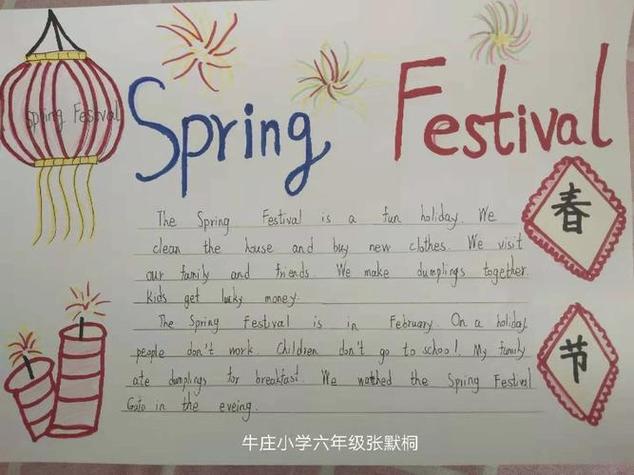 Spring Festival
Spring Festival
The Spring Festival is a fun holiday. We
clean the house and buy new clothes. We visit
our family and friends. We make dumplings together.
Kids get lucky money.
The Spring Festival is in February. On a holiday
people don't work. Children don't go to school. My family
ate dumplings for breakfast. We wathed the Spring Festival
Gato in the eveing.
春
节
牛庄小学六年级张默桐